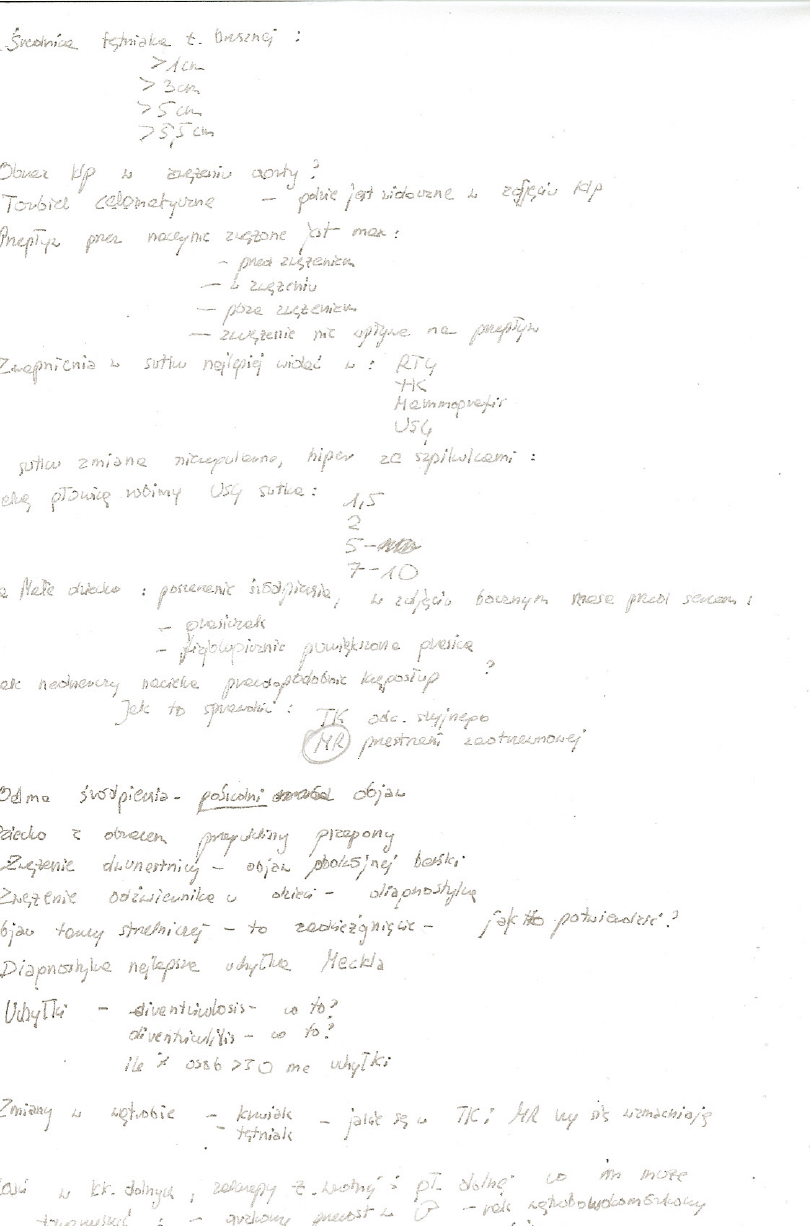 Średnica tętniaka t. brusznej :
>1cm
>3cm
>5cm
>5,5cm
Obraz klp w zwężeniu aorty?
Torbiel celomatyczna – gdzie jest widoczne w zdjęciu klp
Przepływ przez naczynie zwężone jest max :
– przed zwężeniem
– w zwężeniu
– poza zwężeniem
– zwężenie nie wpływa na przepływ
Zwapnienia w sutku najlepiej widać w : RTG
TK
Mammografii
USG
sutku zmiana niereguralna, hiper ze szpikulcami :
głowicą robimy USG sutka :
1,5
2
5 –
7–10
Małe dziecko : poszerzenie śródpiersia, w zdjęciu bocznym masa przed sercem :
– grasiczak
– fizjologicznie powiększona grasica
nadnerczy nacieka prawdopodobnie kręgosłup ?
Jak to sprawdzić : TK odc. szyjnego
MR przestrzeni zaotrzewnowej
Odma śródpiersia – pośredni objaw
Dziecko z obrazem przepukliny przepony
Zwężenie dwunastnicy – objaw podwójnej bańki
Zwężenie odźwiernika u dzieci – diagnostyka
objaw tarczy strzelniczej – to zadzierzgnięcie – jak to potwierdzić?
Diagnostyka najlepsza uchyłka Meckla
Uchyłki – diverticulosis – co to?
diverticulitis – co to?
ile % osób >50 ma uchyłki
Zmiany w wątrobie – krwiak
– tętniak – jakie są w TK i MR czy się wzmacniają
w kk. dolnych , zakrepy ż. wrotnej i gł. dolnej co im może
– – rak wątrobowokomórkowy